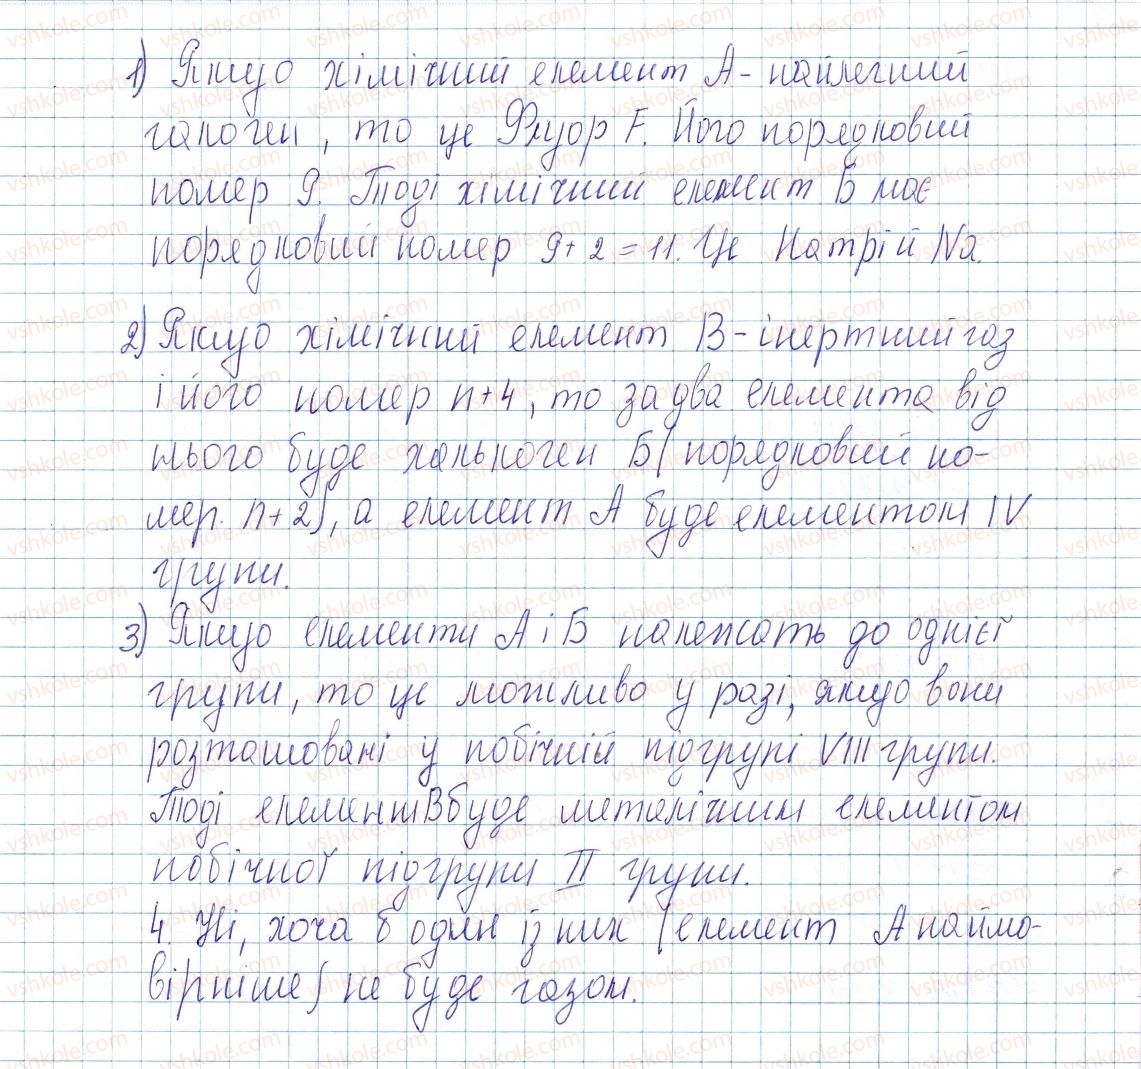 1) Якщо хімічний елемент А - найлегший
галоген, то це Флуор F. Його порядковий
номер 9. Тоді хімічний елемент Б має
порядковий номер 9+2=11. Це Натрій Na.
2) Якщо хімічний елемент В - інертний газ
і його номер n+4, то за два елемента від
нього буде халькоген Б (порядковий но-
мер n+2), а елемент А буде елементом IV
групи.
3) Якщо елементи А і Б належать до однієї
групи, то це можливо у разі, якщо вони
розташовані у побічній підгрупі VIII групи.
Тоді елемент В буде металічним елементом
побічної підгрупи II групи.
4. Ні, хоча б один із них (елемент А наймо-
вірніше) не буде газом.